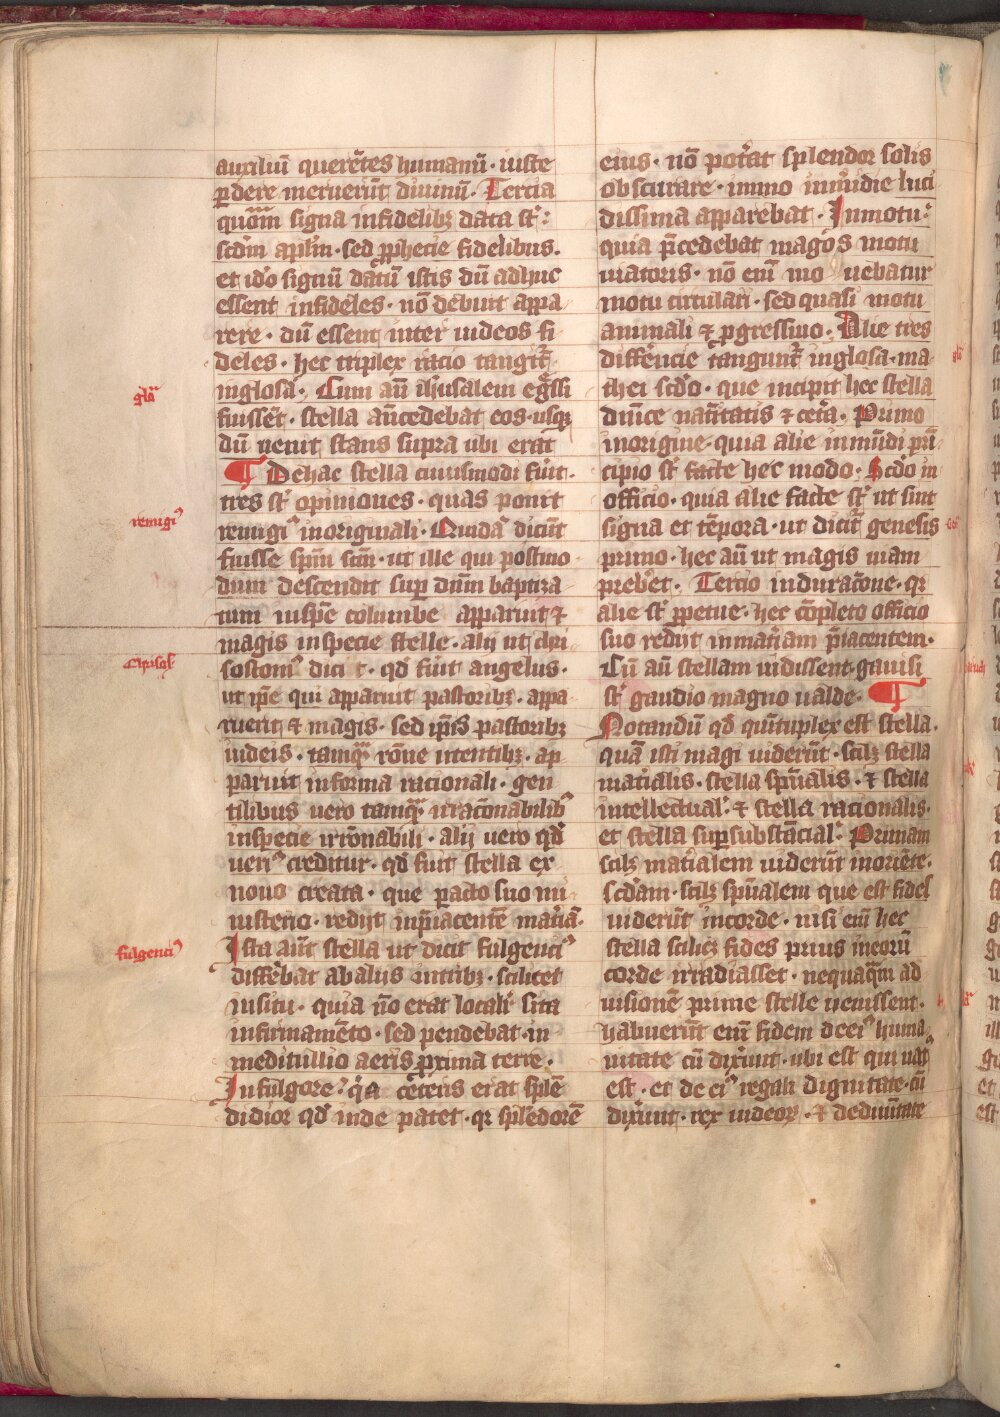 auxiliū querētes humanū · iuste
ꝑdere meruerūt diuinū · Tercia
quō̄m signa infidelibꝫ data st̄ :
scd̄m apl̄m · sed ꝓphecie fidelibus ·
et id̄o signū datū istis dū adhuc
essent infideles · nō debuit appa
rere · dū essent inter iudeos fi
deles · hec triplex racio tangit᷑
inglosa · Cum aū ih̄rusalem eg̃ssi
fuissēt · stella an̄cedebat eos · usqꝫ
dū uenit stans supra ubi erat
¶ Dehac stella cuiusmodi fūit ·
tres st̄ opiniones · quas ponit
remigiꝰ inoriginali · Quidā dicūt
fuisse spm̄ scm̄ · ut ille qui postmo
dum descendit suꝑ dn̄m baptiza
tum inspē̄ columbe apparuit ⁊
magis inspecie stelle · alij ut cri
sostomꝰ dicit · qd̄ fūit angelus ·
ut ip̄e qui apparuit pastoribꝫ · appa
ruerit ⁊ magis · sed ip̄is pastoribꝫ
iudeis · tamqꝫ rōne utentibꝫ · ap
paruit informa racionali · gen
tilibus uero tamqꝫ irrac̄onabilibꝰ
inspecie irrōnabili · alij uero qd̄
ueriꝰ creditur · qd̄ fuit stella ex
nouo creata · que ꝑacto suo mi
nisterio · redijt inp̄iacentē mat̄iā ·
Ista aūt stella ut dicit fulgenciꝰ
differ̄bat abalijs intribꝫ · scilicet
insitu · quia nō erat localiť sita
infirmamēto · sed pendebat · in
meditullio aeris ꝓxima terre ·
Infulgore · qꝛ cēteris erat splē
didior qd̄ inde patet · qꝛ splēdorē
eius · nō pot̄at splendor solis
obscurare · immo inm̄idie luci
dissima apparebat · Inmotu :
quia p̄cedebat magos motu
uiatoris · nō eni᷑ mo uebatur
motu circulari · sed quasi motu
animali ⁊ ꝓgressiuo · Alie tres
differ̄encie tangunt᷑ inglosa · ma
thei scd̄o · que incipit hec stella
diūce nat̄itatis ⁊ cet̄a · Primo
inorigine · quia alie inmūdi pri̅
cipio st̄ facte hec modo · Scd̄o in
officio · quia alie facte st̄ ut sint
signa et tēpora · ut dicit᷑ genesis
primo · hec aū ut magis uiam
preb̄et · Tercio indurac̄one · qꝛ
alie st̄ ꝑpetue · hec cōpleto officio
suo redijt inmat̄iam p̄iacentem ·
Cū aū stellam uidissent · gauisi
st̄ gaudio magno ualde · ¶
Notandū qd̄ qui̅tuplex est stella ·
quā isti magi uiderūt · scilꝫ stella
mat̄ialis · stella spūalis · ⁊ stella
intellectualꝭ · ⁊ stella racionalis ·
et stella suꝑsubstācialꝭ · Primam
scilꝫ mat̄ialem uiderūt inoriēte ·
scd̄am · scilꝫ spūalem que est fides
uiderūt incorde · nisi eni᷑ hec
stella scilicꝫ fides prius ineorū
corde irradiasset · nequaqm̄ ad
uisionē prime stelle uenissent ·
habuerūt eni᷑ fidem de eiꝰ huma
nitate cū dixerūt · ubi est qui nat᷑
est · et de eiꝰ regali dignitate · cū
dixerūt · rex iudeoꝝ · ⁊ dediuītate
glō
remigꝰ
Crisoſ
fulgenciꝰ